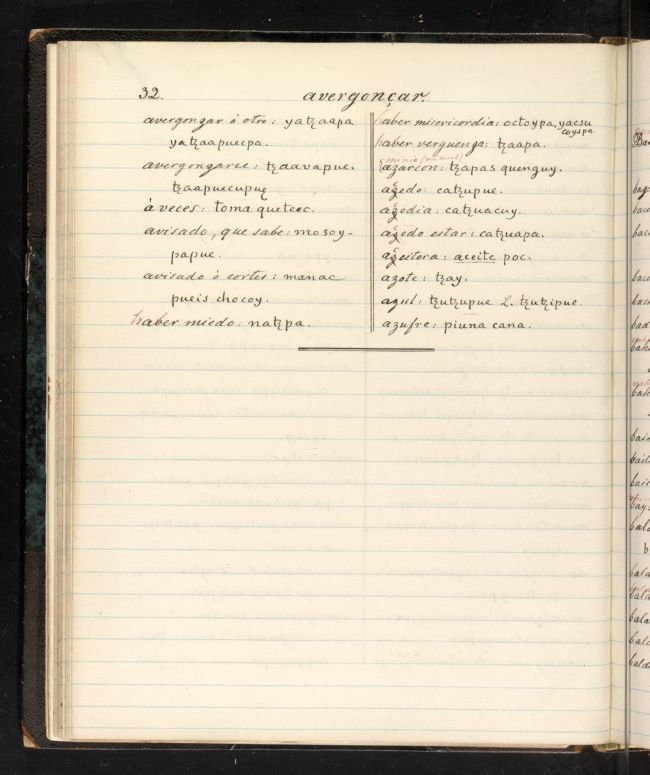 32.
avergonçar.
avergonzar à otro: yatꜩaapa
yatꜩaapuecpa.
avergonzarce: tꜩaavapue.
tꜩaapuecupue
à veces: toma queteec.
avisado, que sabe: mosoy-
papue.
avisado ò cortes: manac
pueis chocoy.
haber miedo: natꜩpa.
haber misericordia: octoypa, yacsu
coyspa
haber verguenza: tꜩaapa.
minio
azarcon: tꜩapas quenguy.
azedo: catꜩupue.
azedia: catꜩuacuy.
azedo estar: catꜩuapa.
azeitera: aceite poc.
azote: tꜩay.
azul: tꜩutꜩupue L. tꜩutꜩipue.
azufre: piuna cana.